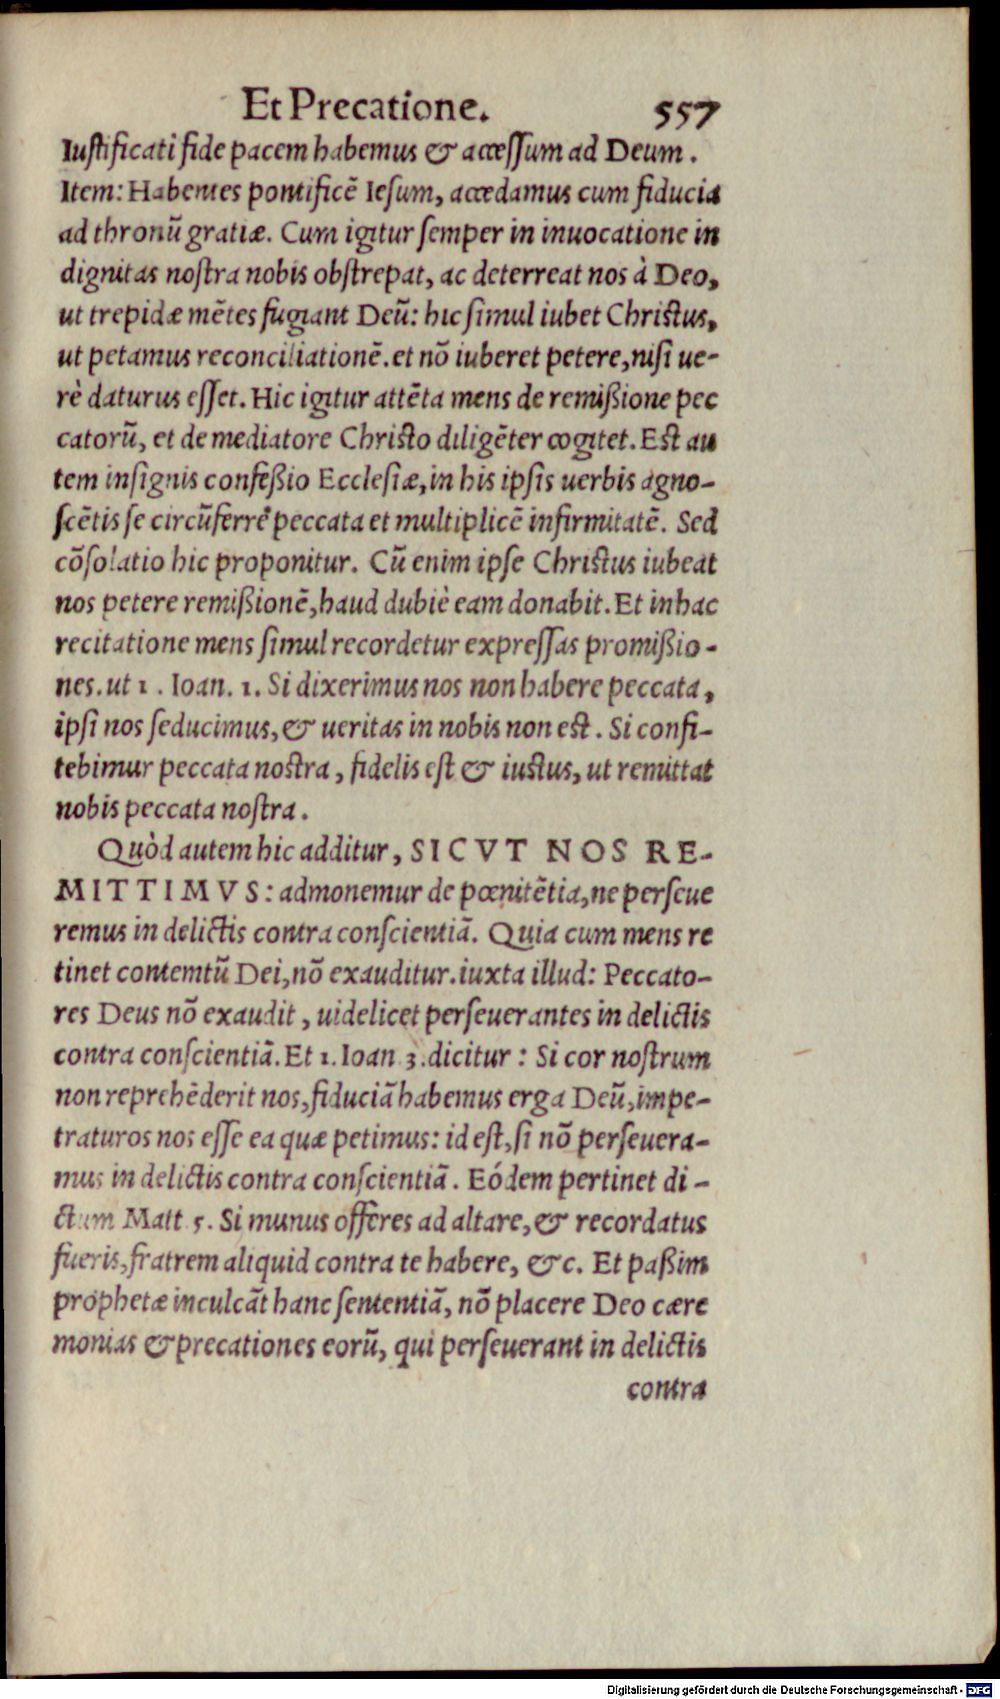 Et Precatione. 557
Iustificati fide pacem habemus & accessum ad Deum.
Item: Habentes pontificē Iesum, accedamus cum fiducia
ad thronū gratiæ. Cum igitur semper in inuocatione in
dignitas nostra nobis obstrepat, ac deterreat nos à Deo,
ut trepidæ mētes fugiant Deū: hic simul iubet Christus,
ut petamus reconciliationē. et nō iuberet petere, nisi ue-
rè daturus esset. Hic igitur attēta mens de remißione pec
catorū, et de mediatore Christo diligēter cogitet. Est au
tem insignis confeßio Ecclesiæ, in his ipsis uerbis agno-
scētis se circūferre peccata et multiplicē infirmitatē. Sed
cōsolatio hic proponitur. Cū enim ipse Christus iubeat
nos petere remißionē, haud dubiè eam donabit. Et in hac
recitatione mens simul recordetur expressas promißio-
nes. ut 1. Ioan. 1. Si dixerimus nos non habere peccata,
ipsi nos seducimus, & ueritas in nobis non est. Si confi-
tebimur peccata nostra, fidelis est & iustus, ut remittat
nobis peccata nostra.
Quòd autem hic additur, SICVT NOS RE-
MITTIMVS: admonemur de pœnitētia, ne perseue
remus in delictis contra conscientiā. Quia cum mens re
tinet contemtū Dei, nō exauditur. iuxta illud: Peccato-
res Deus nō exaudit, uidelicet perseuerantes in delictis
contra conscientiā. Et 1. Ioan 3. dicitur: Si cor nostrum
non reprehēderit nos, fiduciā habemus erga Deū, impe-
traturos nos esse ea quæ petimus: id est, si nō perseuera-
mus in delictis contra conscientiā. Eódem pertinet di-
ctum Matt 5. Si munus offeres ad altare, & recordatus
fueris, fratrem aliquid contra te habere, &c. Et paßim
prophetæ inculcāt hanc sententiā, nō placere Deo cære
monias & precationes eorū, qui perseuerant in delictis
contra
Digitalisierung gefördert durch die Deutsche Forschungsgemeinschaft - DFG